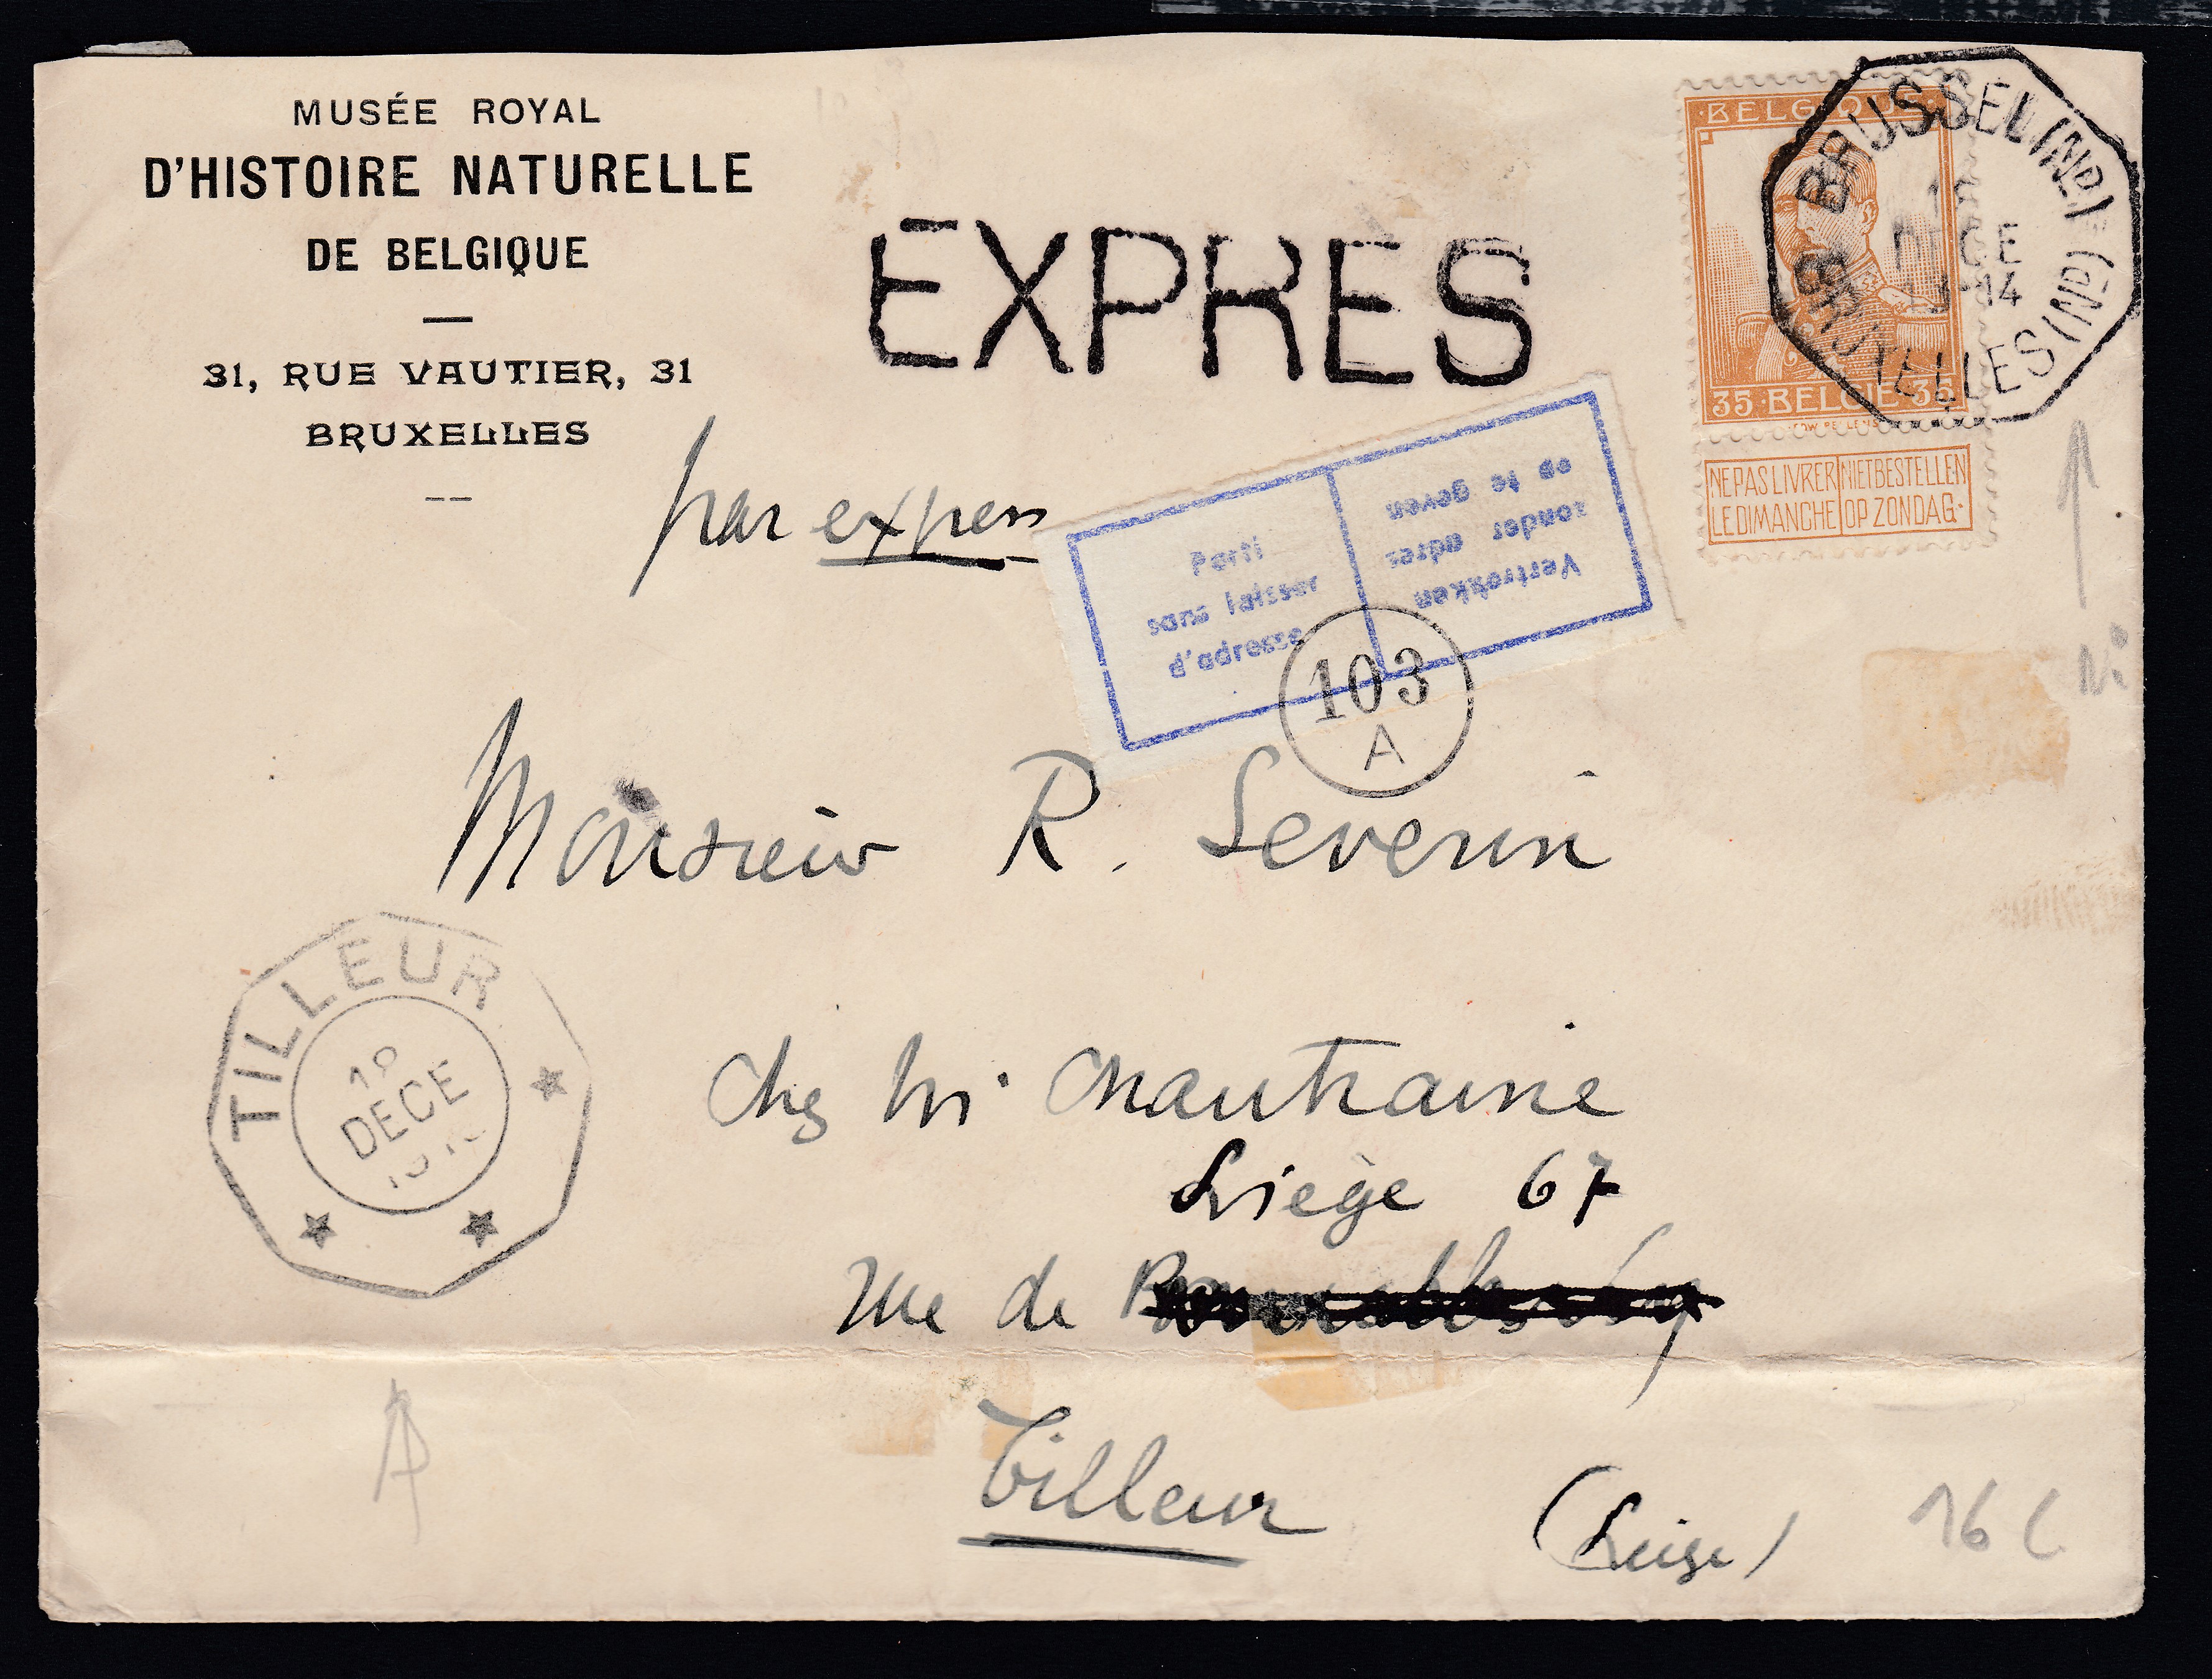 MUSÉE ROYAL
D'HISTOIRE NATURELLE
DE BELGIQUE
31, RUE VAUTIER, 31
BRUXELLES
EXPRES
BELGIQUE
35 BELGIE 35
NE PAS LIVRER LE DIMANCHE
NIET BESTELLEN OP ZONDAG.
BRUSSEL (NB)
DECE
14
BRUXELLES (QN)
par expres
Parti
sans laisser
d'adresse
Vertrokken
zonder adres
op te geven
103
A
Monsieur R. Severin
TILLEUR
DECE
chez Mr Chantraine
Liège 67
rue de
Tilleur
(Liège)
16